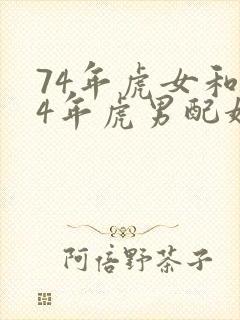 74年虎女和
4年虎男配
阿倍野茶子